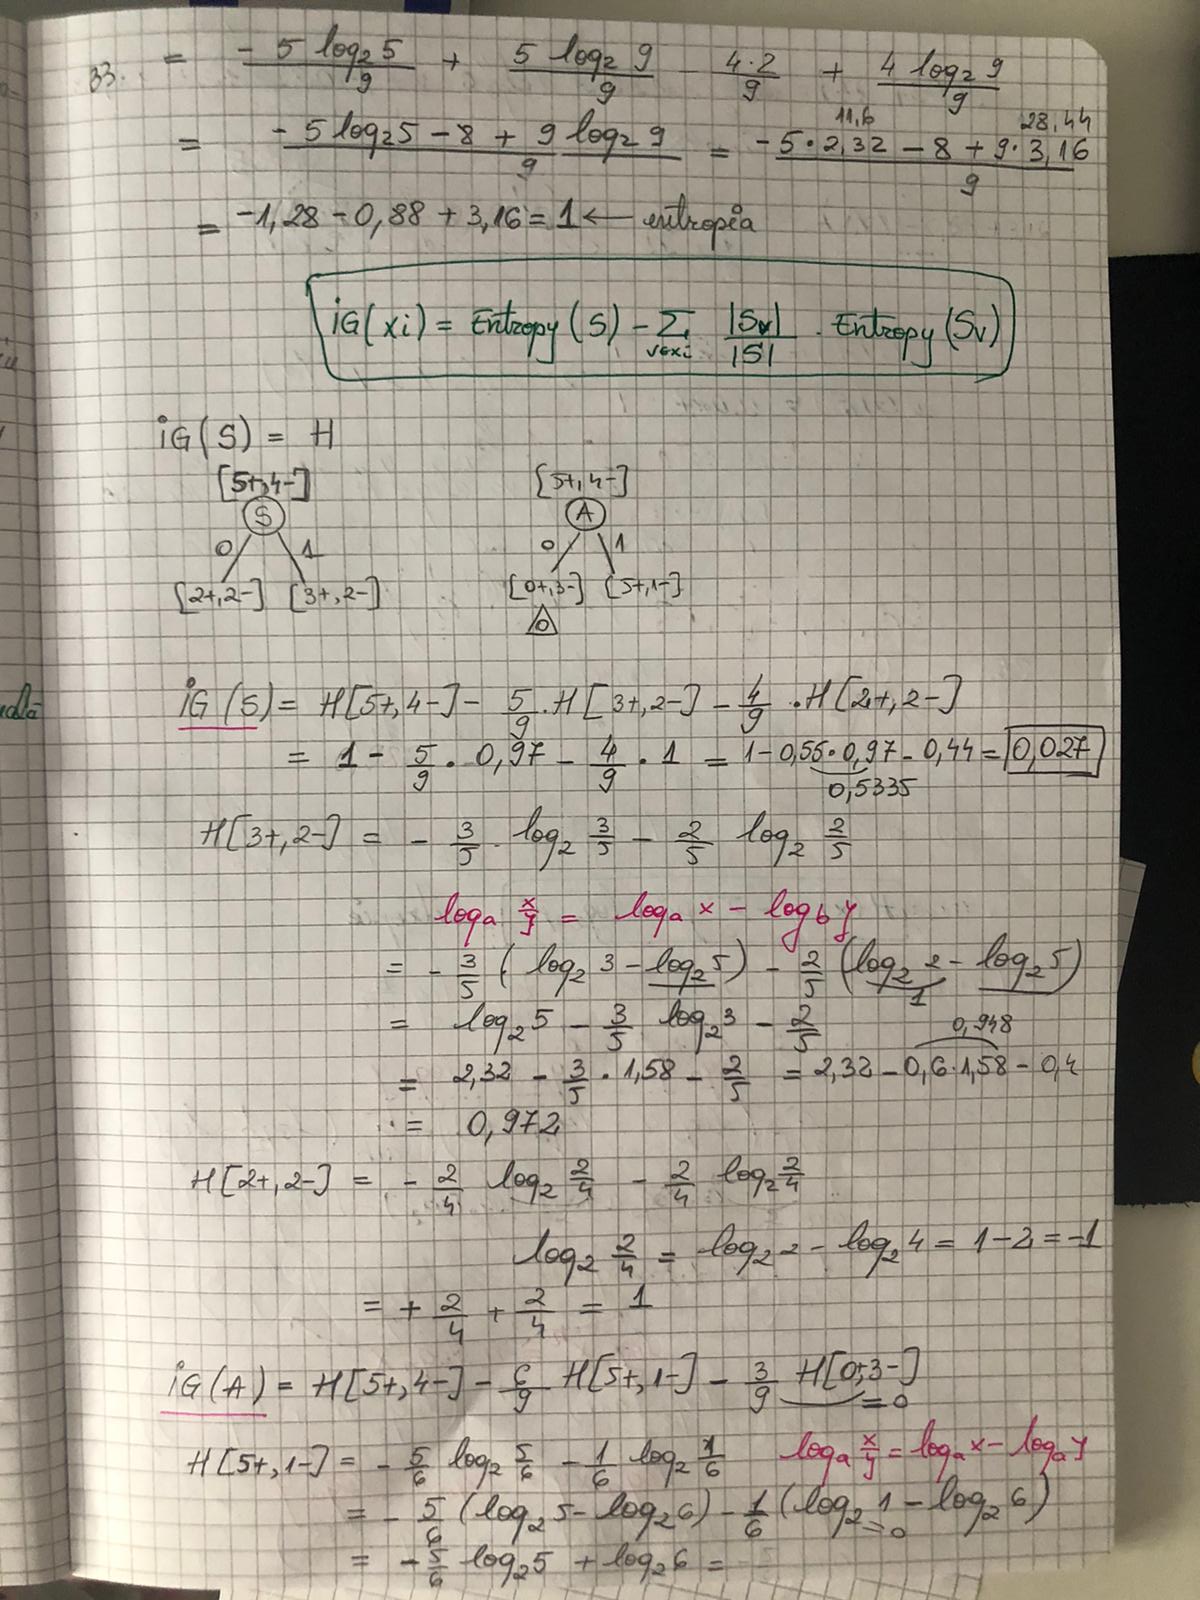 33. = - 5 log₂ 5 / 9 + 5 log₂ 9 / 9 - 4·2 / 9 + 4 log₂ 9 / 9
11,6 28,44
= - 5 log₂ 5 - 8 + 9 log₂ 9 / 9 = -5·2,32 - 8 + 9·3,16 / 9
= -1,28 - 0,88 + 3,16 = 1 ← entropia
iG(xi) = Entropy (S) - Σ v∈xi |Sv| / |S| · Entropy (Sv)
iG(S) = H
[5+,4-] [5+,4-]
S A
0 1 0 1
[2+,2-] [3+,2-] [0+,3-] [5+,1-]
0
iG(S) = H[5+,4-] - 5/9 · H[3+,2-] - 4/9 · H[2+,2-]
= 1 - 5/9 · 0,97 - 4/9 · 1 = 1 - 0,55·0,97 - 0,44 = 0,027
0,5335
H[3+,2-] = - 3/5 · log₂ 3/5 - 2/5 log₂ 2/5
logₐ x/y = logₐ x - log_b y
= - 3/5 ( log₂ 3 - log₂ 5) - 2/5 (log₂ 2 - log₂ 5)
1
= log₂ 5 - 3/5 log₂ 3 - 2/5
0,948
= 2,32 - 3/5 · 1,58 - 2/5 = 2,32 - 0,6·1,58 - 0,4
= 0,972
H[2+,2-] = - 2/4 log₂ 2/4 - 2/4 log₂ 2/4
log₂ 2/4 = log₂ 2 - log₂ 4 = 1-2 = -1
= + 2/4 + 2/4 = 1
iG(A) = H[5+,4-] - 6/9 H[5+,1-] - 3/9 H[0+,3-]
= 0
H[5+,1-] = - 5/6 log₂ 5/6 - 1/6 log₂ 1/6 logₐ x/y = logₐ x - logₐ y
= - 5/6 (log₂ 5 - log₂ 6) - 1/6 (log₂ 1 - log₂ 6)
= 0
= - 5/6 log₂ 5 + log₂ 6 =